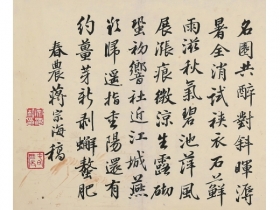 名園共醉對斜暉溽
暑全消試裌衣石蘚
雨滋秋氣碧池萍風
展漲痕微涼生露砌
蛩初響社近江城燕
欲歸遙指重陽還有
約薑芽新剝蟹螯肥
春農蔣宗海稿